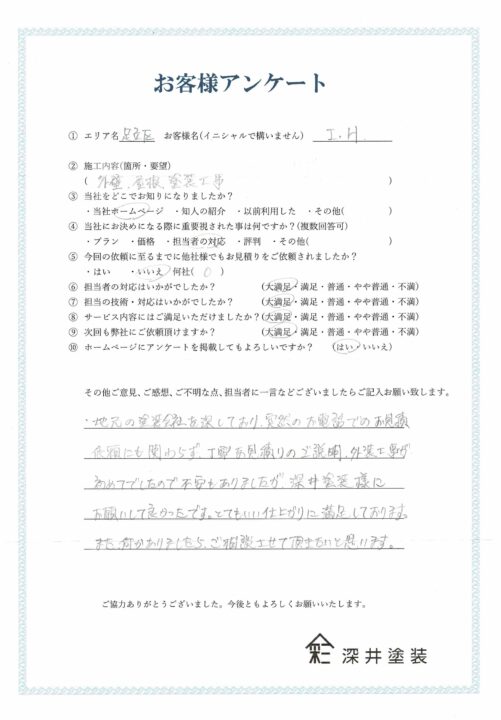 お客様アンケート
① エリア名 足立区 お客様名(イニシャルで構いません) I.H.
② 施工内容(箇所・要望)
( 外壁、屋根、塗装工事 )
③ 当社をどこでお知りになりましたか?
・当社ホームページ ・知人の紹介 ・以前利用した ・その他( )
④ 当社にお決めになる際に重要視された事は何ですか?(複数回答可)
・プラン ・価格 ・担当者の対応 ・評判 ・その他( )
⑤ 今回の依頼に至るまでに他社様でもお見積りをご依頼されましたか?
・はい ・いいえ 何社( 0 )
⑥ 担当者の対応はいかがでしたか? (大満足・満足・普通・やや普通・不満)
⑦ 担当の技術・対応はいかがでしたか? (大満足・満足・普通・やや普通・不満)
⑧ サービス内容にはご満足いただけましたか?(大満足・満足・普通・やや普通・不満)
⑨ 次回も弊社にご依頼頂けますか? (大満足・満足・普通・やや普通・不満)
⑩ ホームページにアンケートを掲載してもよろしいですか? (はい・いいえ)
その他ご意見、ご感想、ご不明な点、担当者に一言などございましたらご記入お願い致します。
・地元の塗装会社を探しており、突然のお電話でのお見積
依頼にも関わらず、丁寧お見積りのご説明、外装工事が
初めてでしたので不安もありましたが、深井塗装様に
お願いして良かったです。とてもいい仕上がりに満足しております。
また、何かありましたら、ご相談させて頂きたいと思います。
ご協力ありがとうございました。今後ともよろしくお願いいたします。
深井塗装